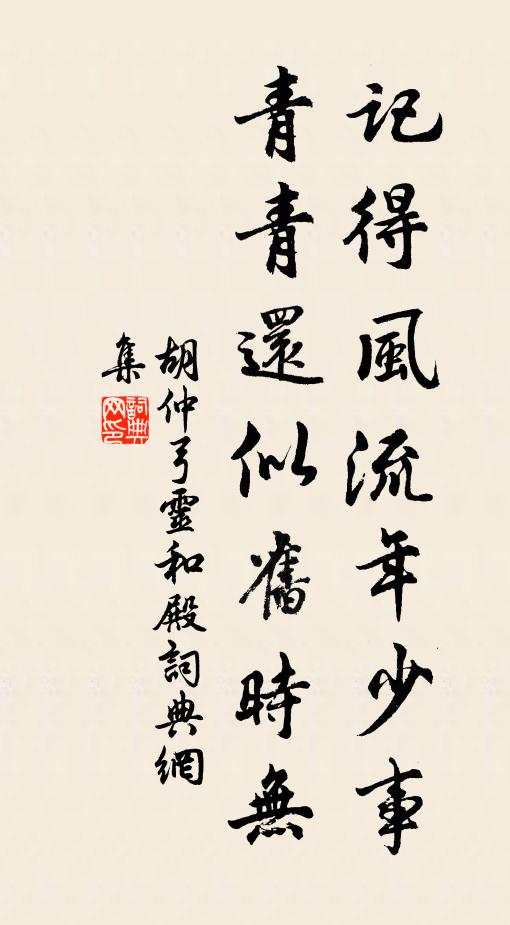 記得風流年少事
青青還似舊時無
胡仲弓靈和殿詞典網
集
詞典
网印